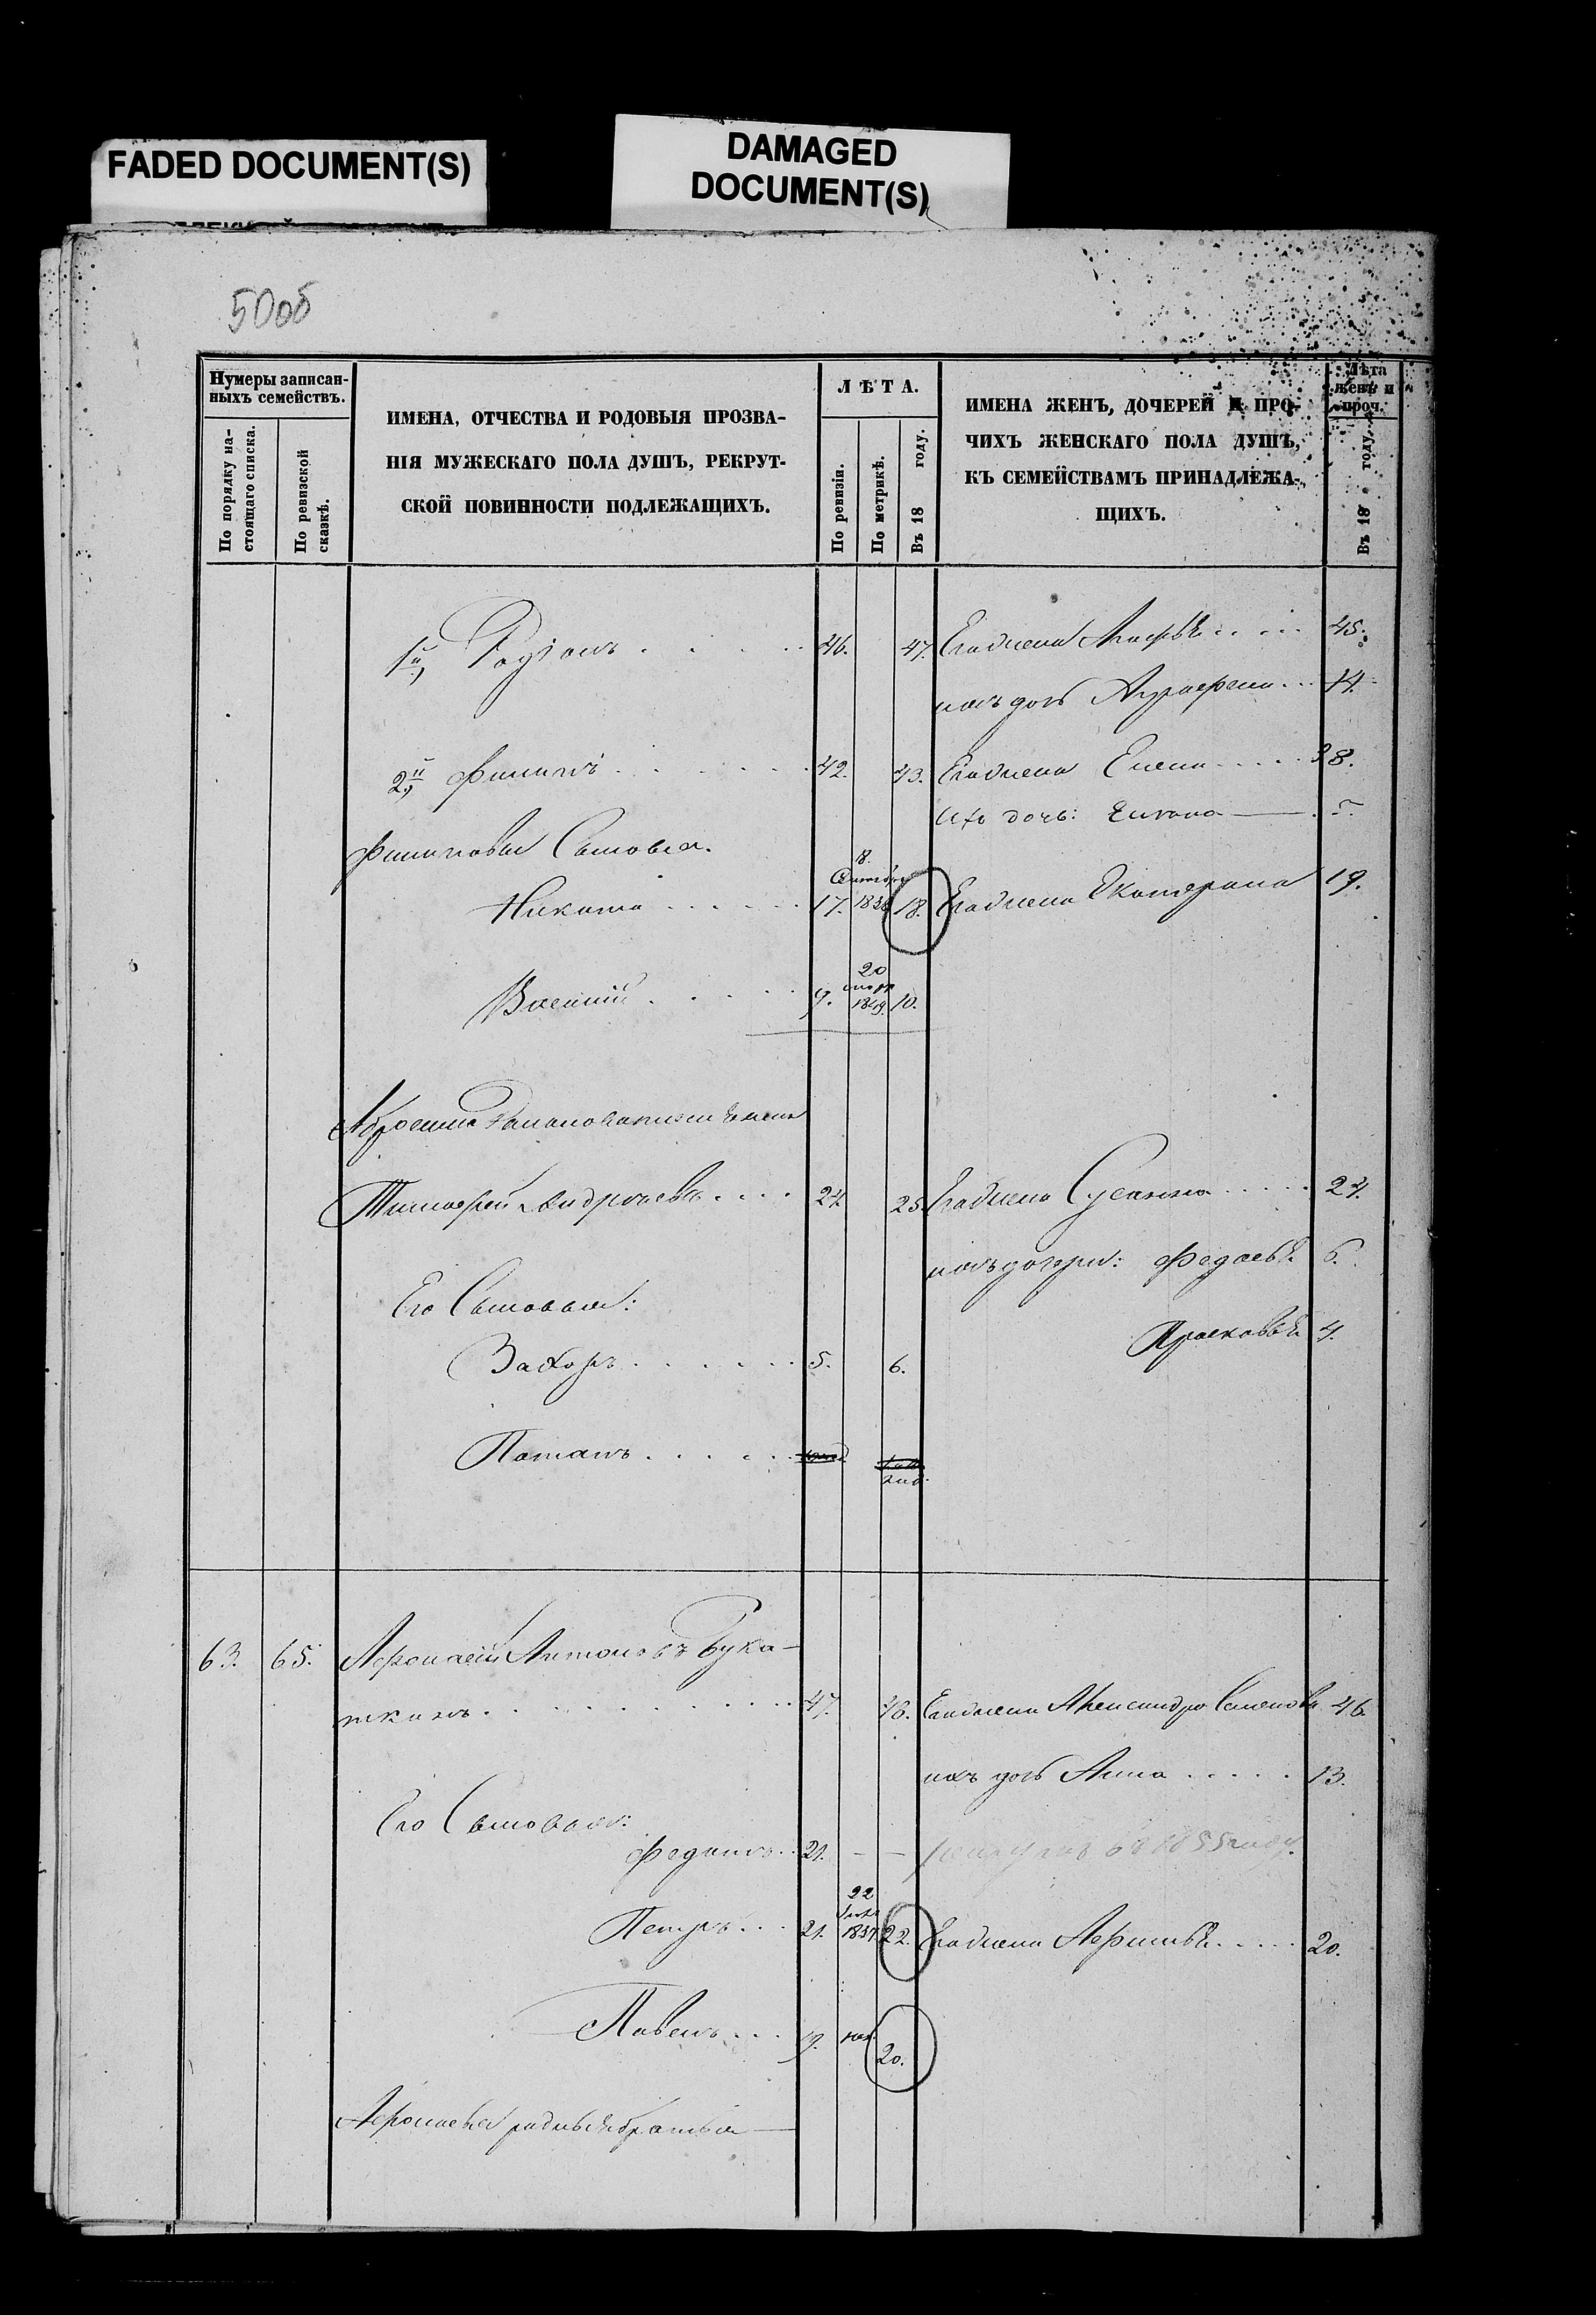 FADED DOCUMENT(S)
DAMAGED
DOCUMENT(S)
50об
Нумеры записан-
ныхъ семействъ.
По порядку на-
стоящаго списка.
По ревизской
сказкѣ.
ИМЕНА, ОТЧЕСТВА И РОДОВЫЯ ПРОЗВА-
НІЯ МУЖЕСКАГО ПОЛА ДУШЪ, РЕКРУТ-
СКОЙ ПОВИННОСТИ ПОДЛЕЖАЩИХЪ.
ЛѢТА.
По ревизіи.
По метрикѣ.
Въ 18 году.
ИМЕНА ЖЕНЪ, ДОЧЕРЕЙ И ПРО-
ЧИХЪ ЖЕНСКАГО ПОЛА ДУШЪ,
КЪ СЕМЕЙСТВАМЪ ПРИНАДЛЕЖА-
ЩИХЪ.
Лѣта
женъ и
проч.
Въ 18 году.
1й, Родіонъ . . . . 46. 47. Его жена Агафья . . . . 45.
ихъ дочь Аграфена . . . 14.
2й, Филипъ . . . . . . 42. 43. Его жена Елена . . . . . 38.
Ихъ дочь: 5.
Филиповы Сыновья.
18.
Никита . . . . . . 17. 18. Его жена Екатерина 19.
20
Василий . . . . . 9. 1849. 10.
Тимофей Андреевъ . . . . 24 25. Его жена Сусанна . . . . . 24.
ихъ дочери: Федосья 6.
Его Сыновья:
Прасковья 4.
Захаръ . . . . . . 5. 6.
Потапъ . . . . . .
63. 65. Афонасий Антоновъ Бука-
ткинъ . . . . . . . . . . . 47. 48. Его жена Александра Семенова 46.
ихъ дочь Анна . . . . . 13.
Его Сыновья:
21. — — 1855 году.
22
Петръ . . . 21. 1837 22. Его жена 20.
Павелъ . . . 19. 20.
Афонасья родные братья —